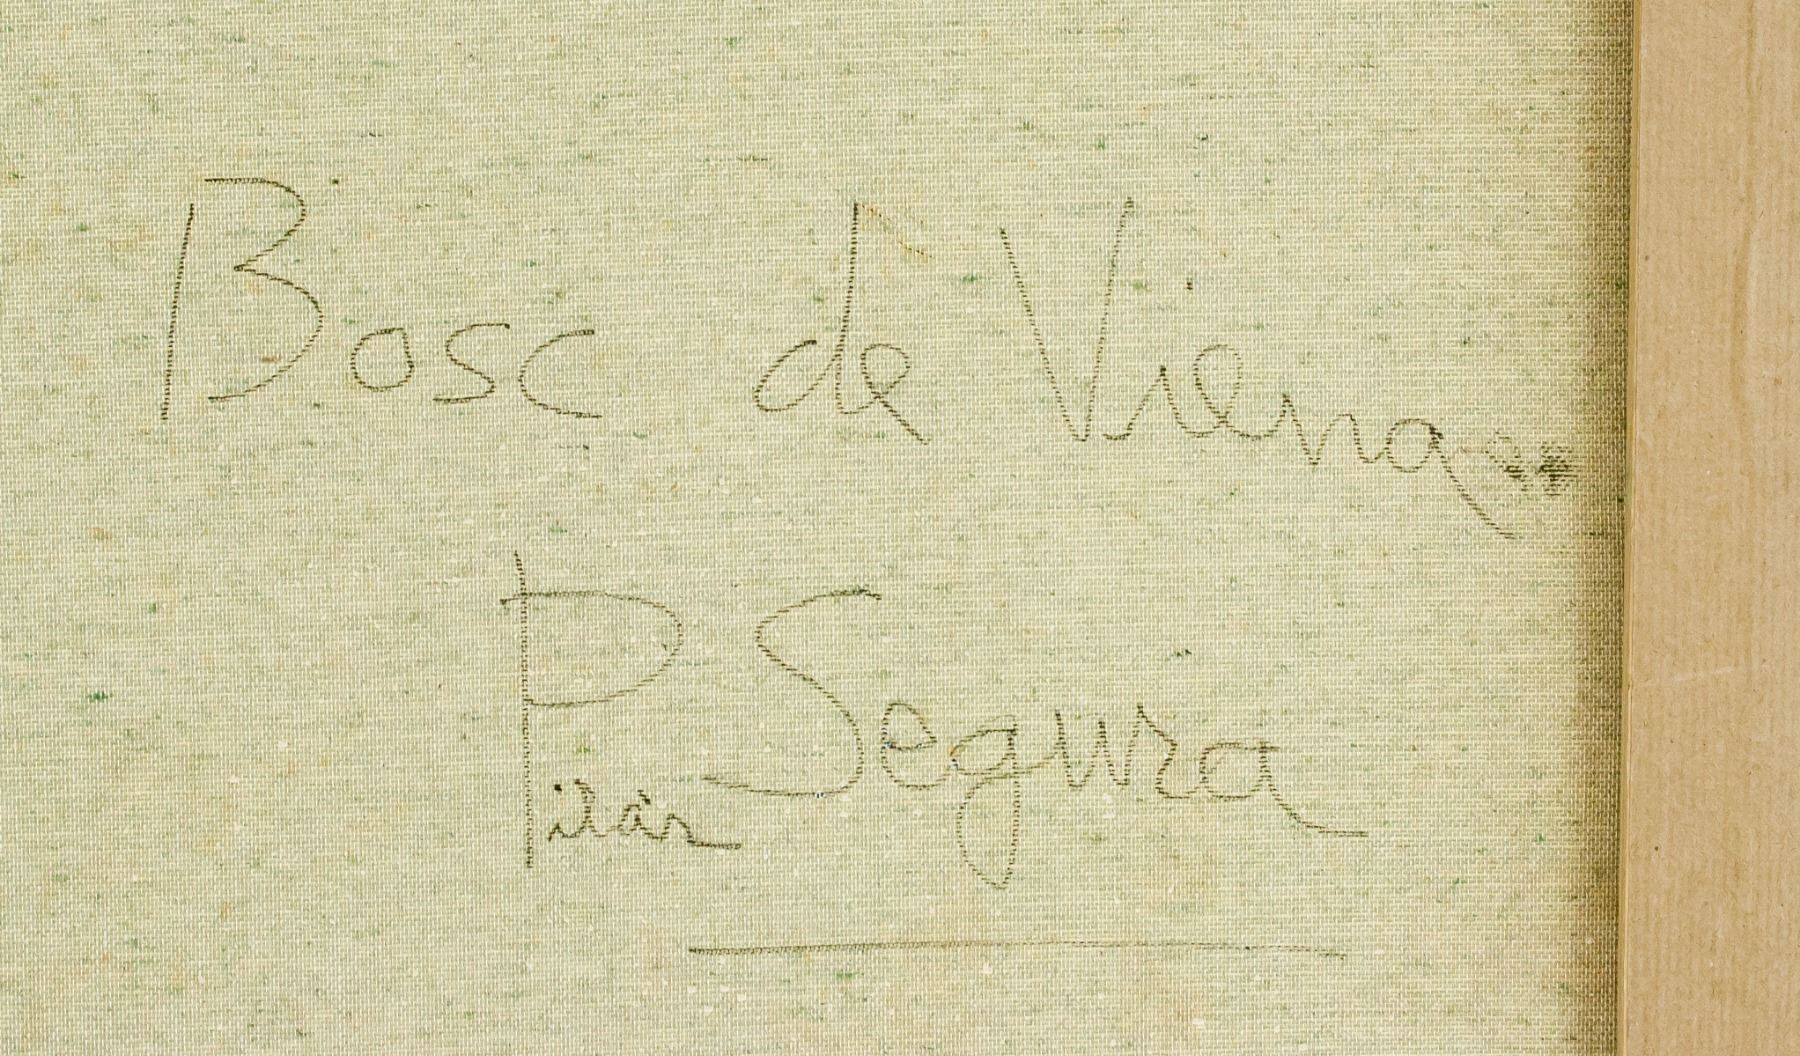 Bosc de Viena
Pilar Segura